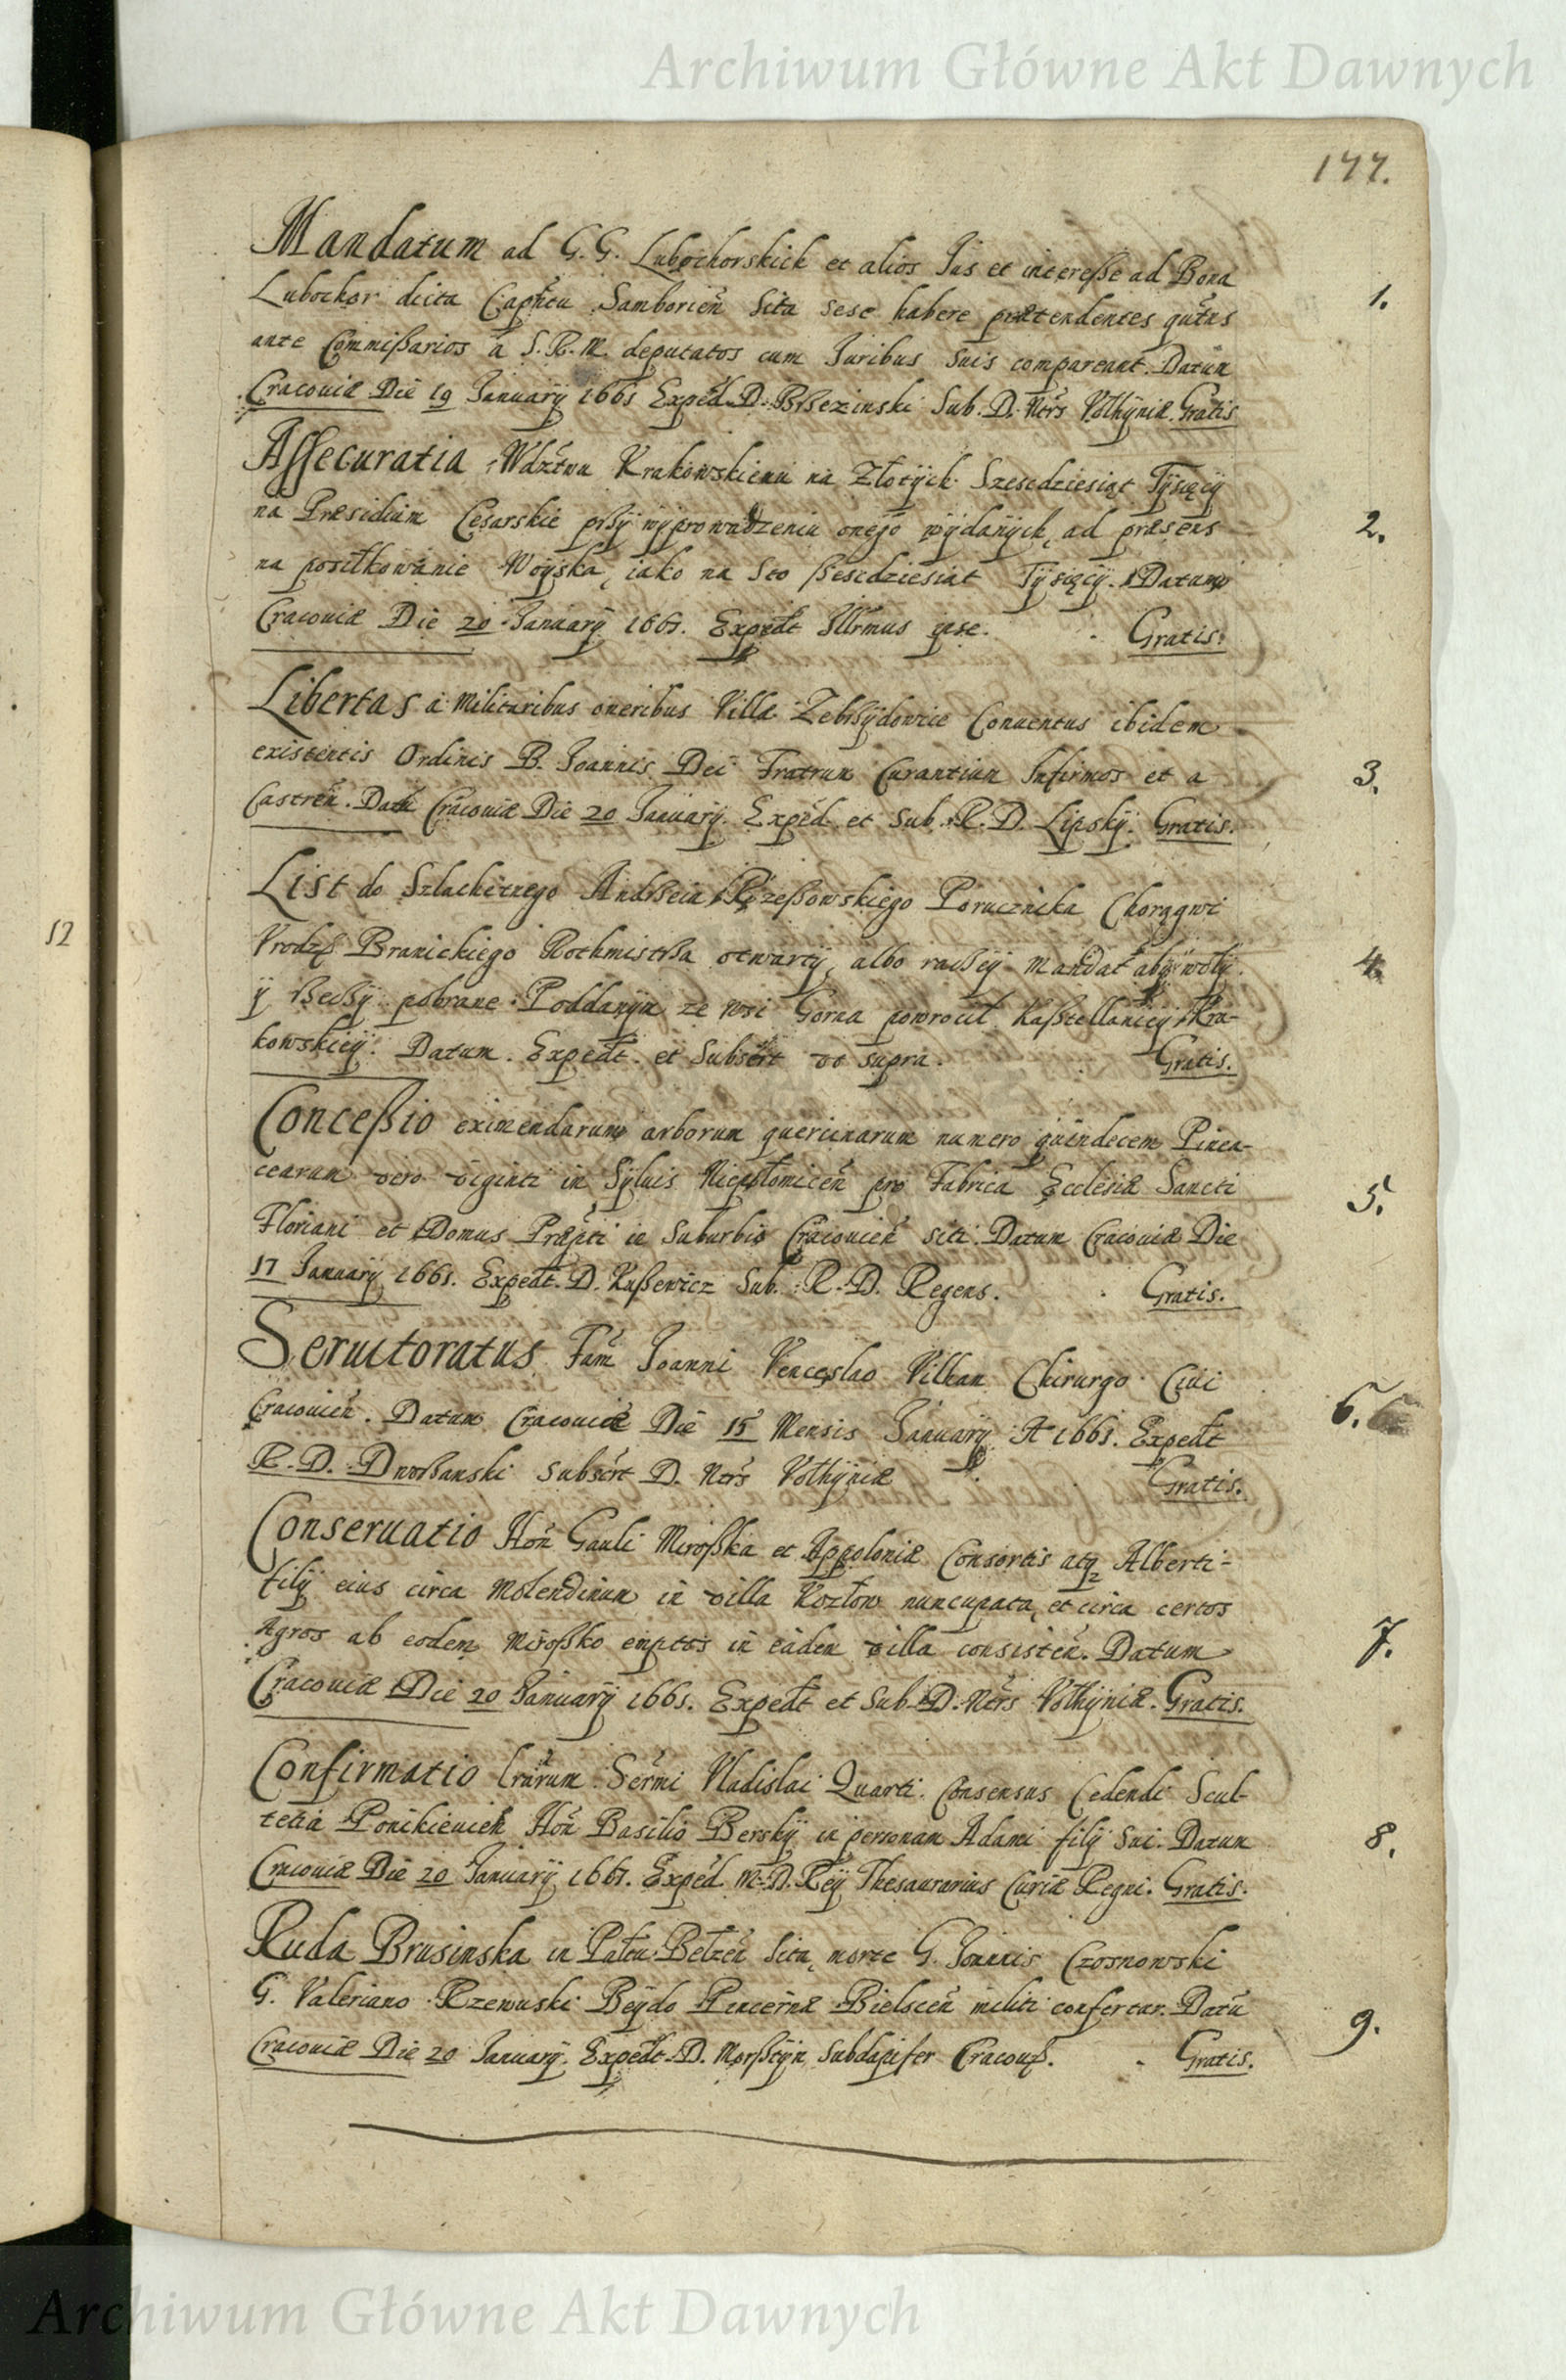 Archiwum Główne Akt Dawnych
177.
Mandatum ad G. G. Lubochorskich et alios Jus et interesse ad Bona
Lubochor dicta Captu Samborień sita sese habere prætendentes qũtus
ante Commissarios a S. R. M. deputatos cum Juribus suis compareant. Datum
Cracoviæ Die 19 January 1661 Exped. D. Brzezinski Sub. D. Ntrs Volhyniæ. Gratis
1.
Assecuratia Wdztwu Krakowskiemu na Złotych Szescdziesiąt Tysięcy
na Præsidium Cesarskie przy wyprowadzeniu onego wydanych, ad præsens
na posiłkowanie Woyska, iako na Sto szescdziesiat Tysięcy. Datum
Cracoviæ Die 20 January 1661. Expedt Illrmus ipse. Gratis.
2.
Libertas a militaribus oneribus Villæ Zebrzydowice Conventus ibidem
existentis Ordinis B. Joannis Dei Fratrum Curantium Infirmos et a
Castreń. Datũ Cracoviæ Die 20 January. Exped. et Sub. R. D. Lipsky. Gratis.
3.
List do Szlachetnego Andrzeia Rzeszowskiego Porucznika Chorągwi
Vrodzo Branickiego Rothmistrza otwarty, albo raczey mandat aby woły
y rzeczy pobrane Poddanym ze wsi Gorna powrocił Kasztellaniey Kra-
kowskiey. Datum. Expedt. et Subscrt vt supra. Gratis.
4.
Concessio eximendarum arborum quercinarum numero quindecem Pinea-
cearum vero viginti in Sylvis Niepołomiceń pro Fabrica Ecclesiæ Sancti
Floriani et Domus Præpti in Suburbio Cracovień siti. Datum Cracoviæ Die
17 January 1661. Expedt. D. Kuszewicz Sub. R. D. Regens. Gratis.
5.
Seruitoratus Fam̃ Joanni Venceslao Vilkan Chirurgo Ciui
Cracovień. Datum Cracoviæ Die 15 Mensis January A 1661. Expedt
R. D. Dworzanski subscrt D. Ntrs Volhyniæ Gratis.
6.
Conseruatio Hoñ Gauli Miroszka et Appoloniæ Consortis atq Alberti
filij eius circa molendinum in villa Kozłow nuncupata, et circa certos
Agros ab eodem Miroszko emptos in eadem villa consisteñ. Datum
Cracoviæ Die 20 January 1661. Expedt et Sub. D. Ntrs Volhyniæ. Gratis.
7.
Confirmatio lrarum Sermi Vladislai Quarti. Consensus Cedendi Scul-
tetia Ponikievień Hoñ Basilio Bersky in personam Adami filij sui. Datum
Cracoviæ Die 20 January 1661. Exped. M. D. Rey Thesaurarius Curiæ Regni. Gratis.
8.
Ruda Brusinska in Paltu Bełzeń sita, morte G. Joannis Czosnowski
G. Valeriano Rzewuski Beydo Pincernæ Bielsceń militi confertur. Datũ
Cracoviæ Die 20 January. Expedt. D. Morsztyn Subdapifer Cracov. Gratis.
9.
12
Archiwum Główne Akt Dawnych